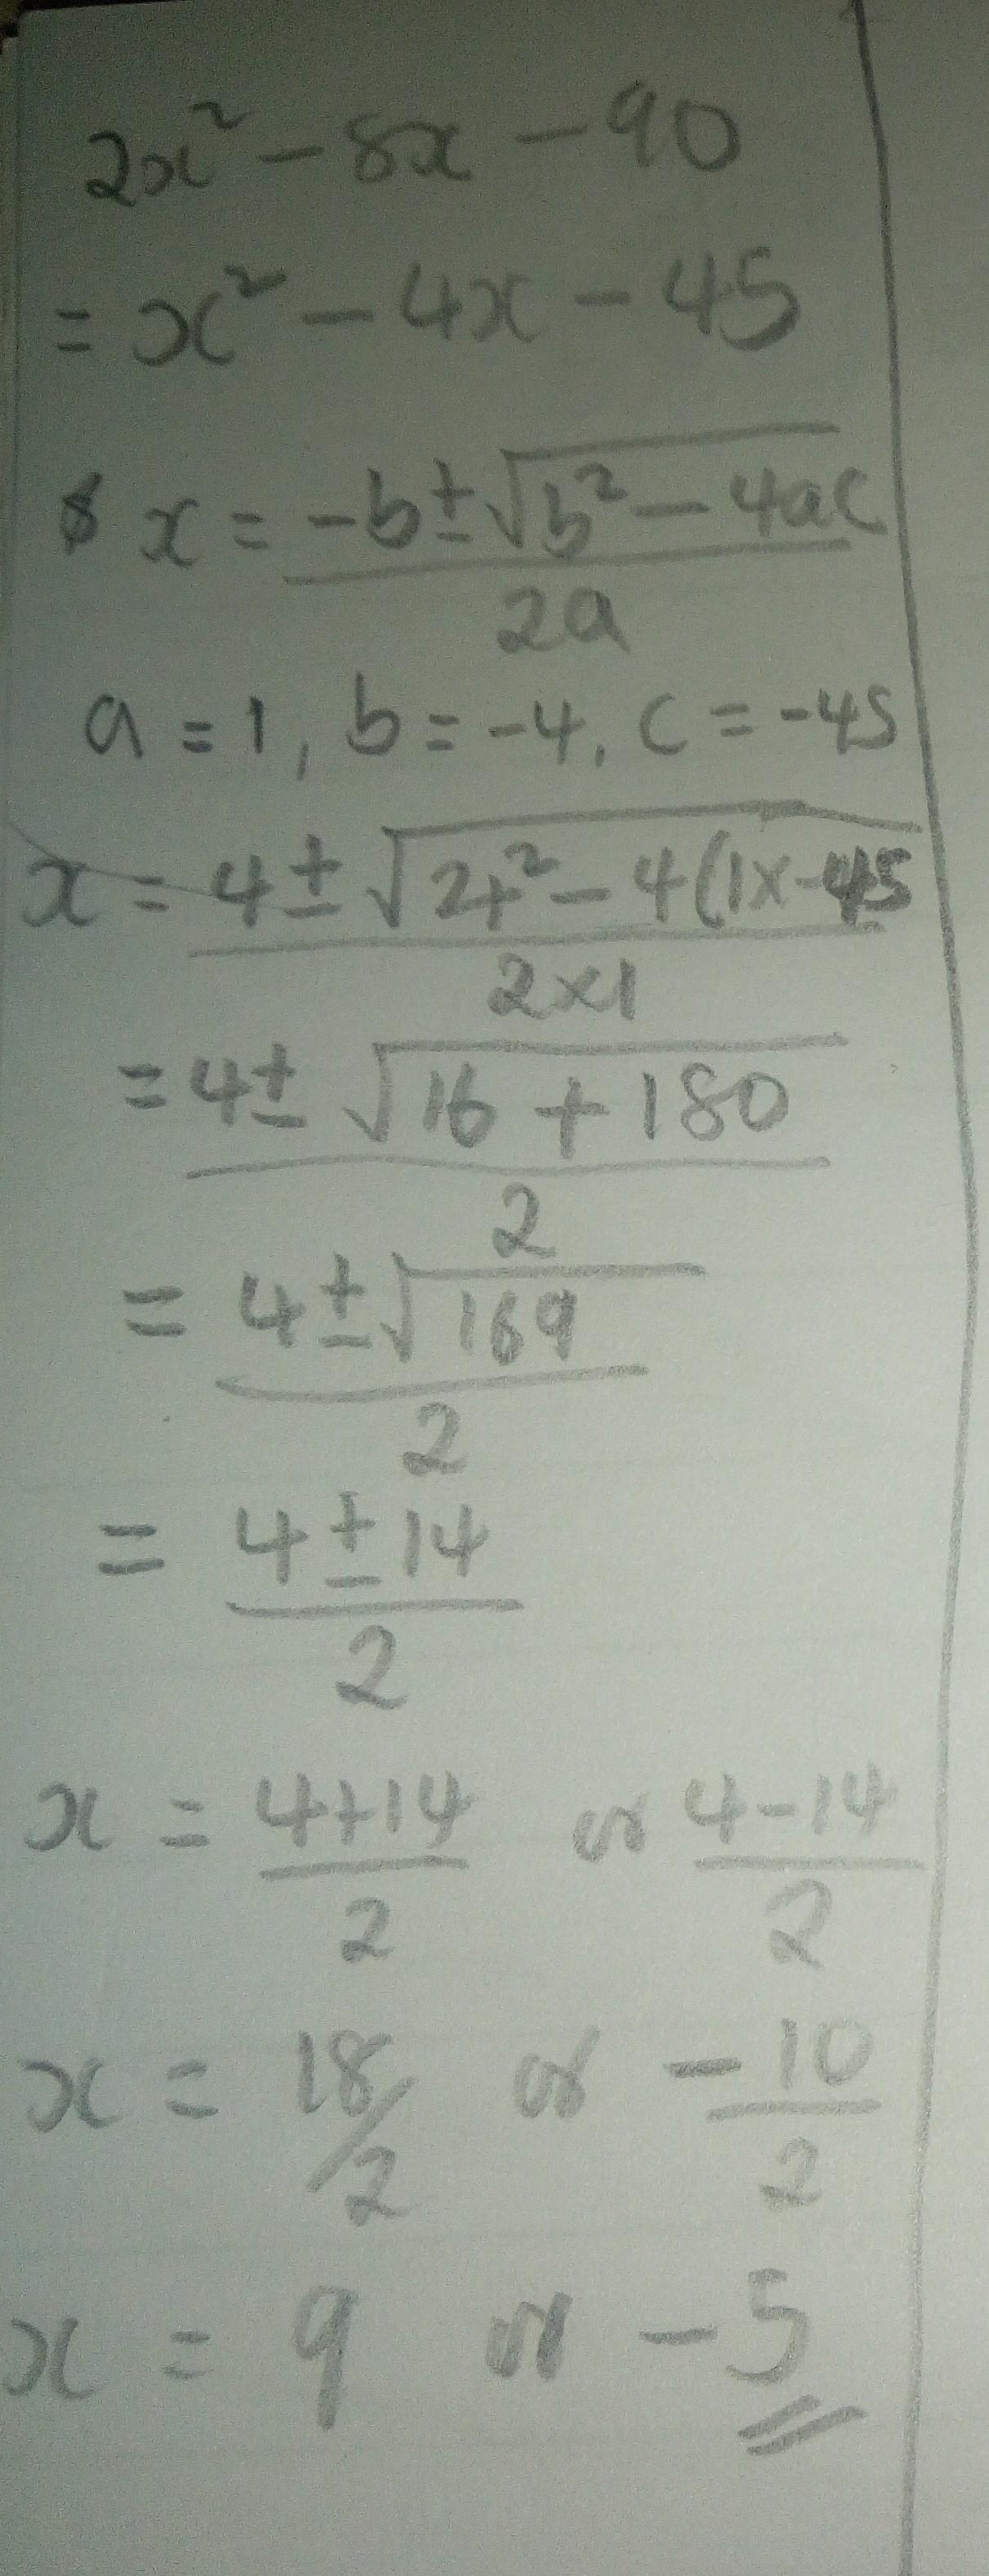 2x² - 8x - 90
= x² - 4x - 45
x = (-b ± √(b² - 4ac)) / 2a
a = 1, b = -4, c = -45
x = (4 ± √(4² - 4(1x-45)) / 2x1
= (4 ± √(16 + 180)) / 2
= (4 ± √169) / 2
= (4 ± 14) / 2
x = (4+14)/2 or (4-14)/2
x = 18/2 or -10/2
x = 9 or -5